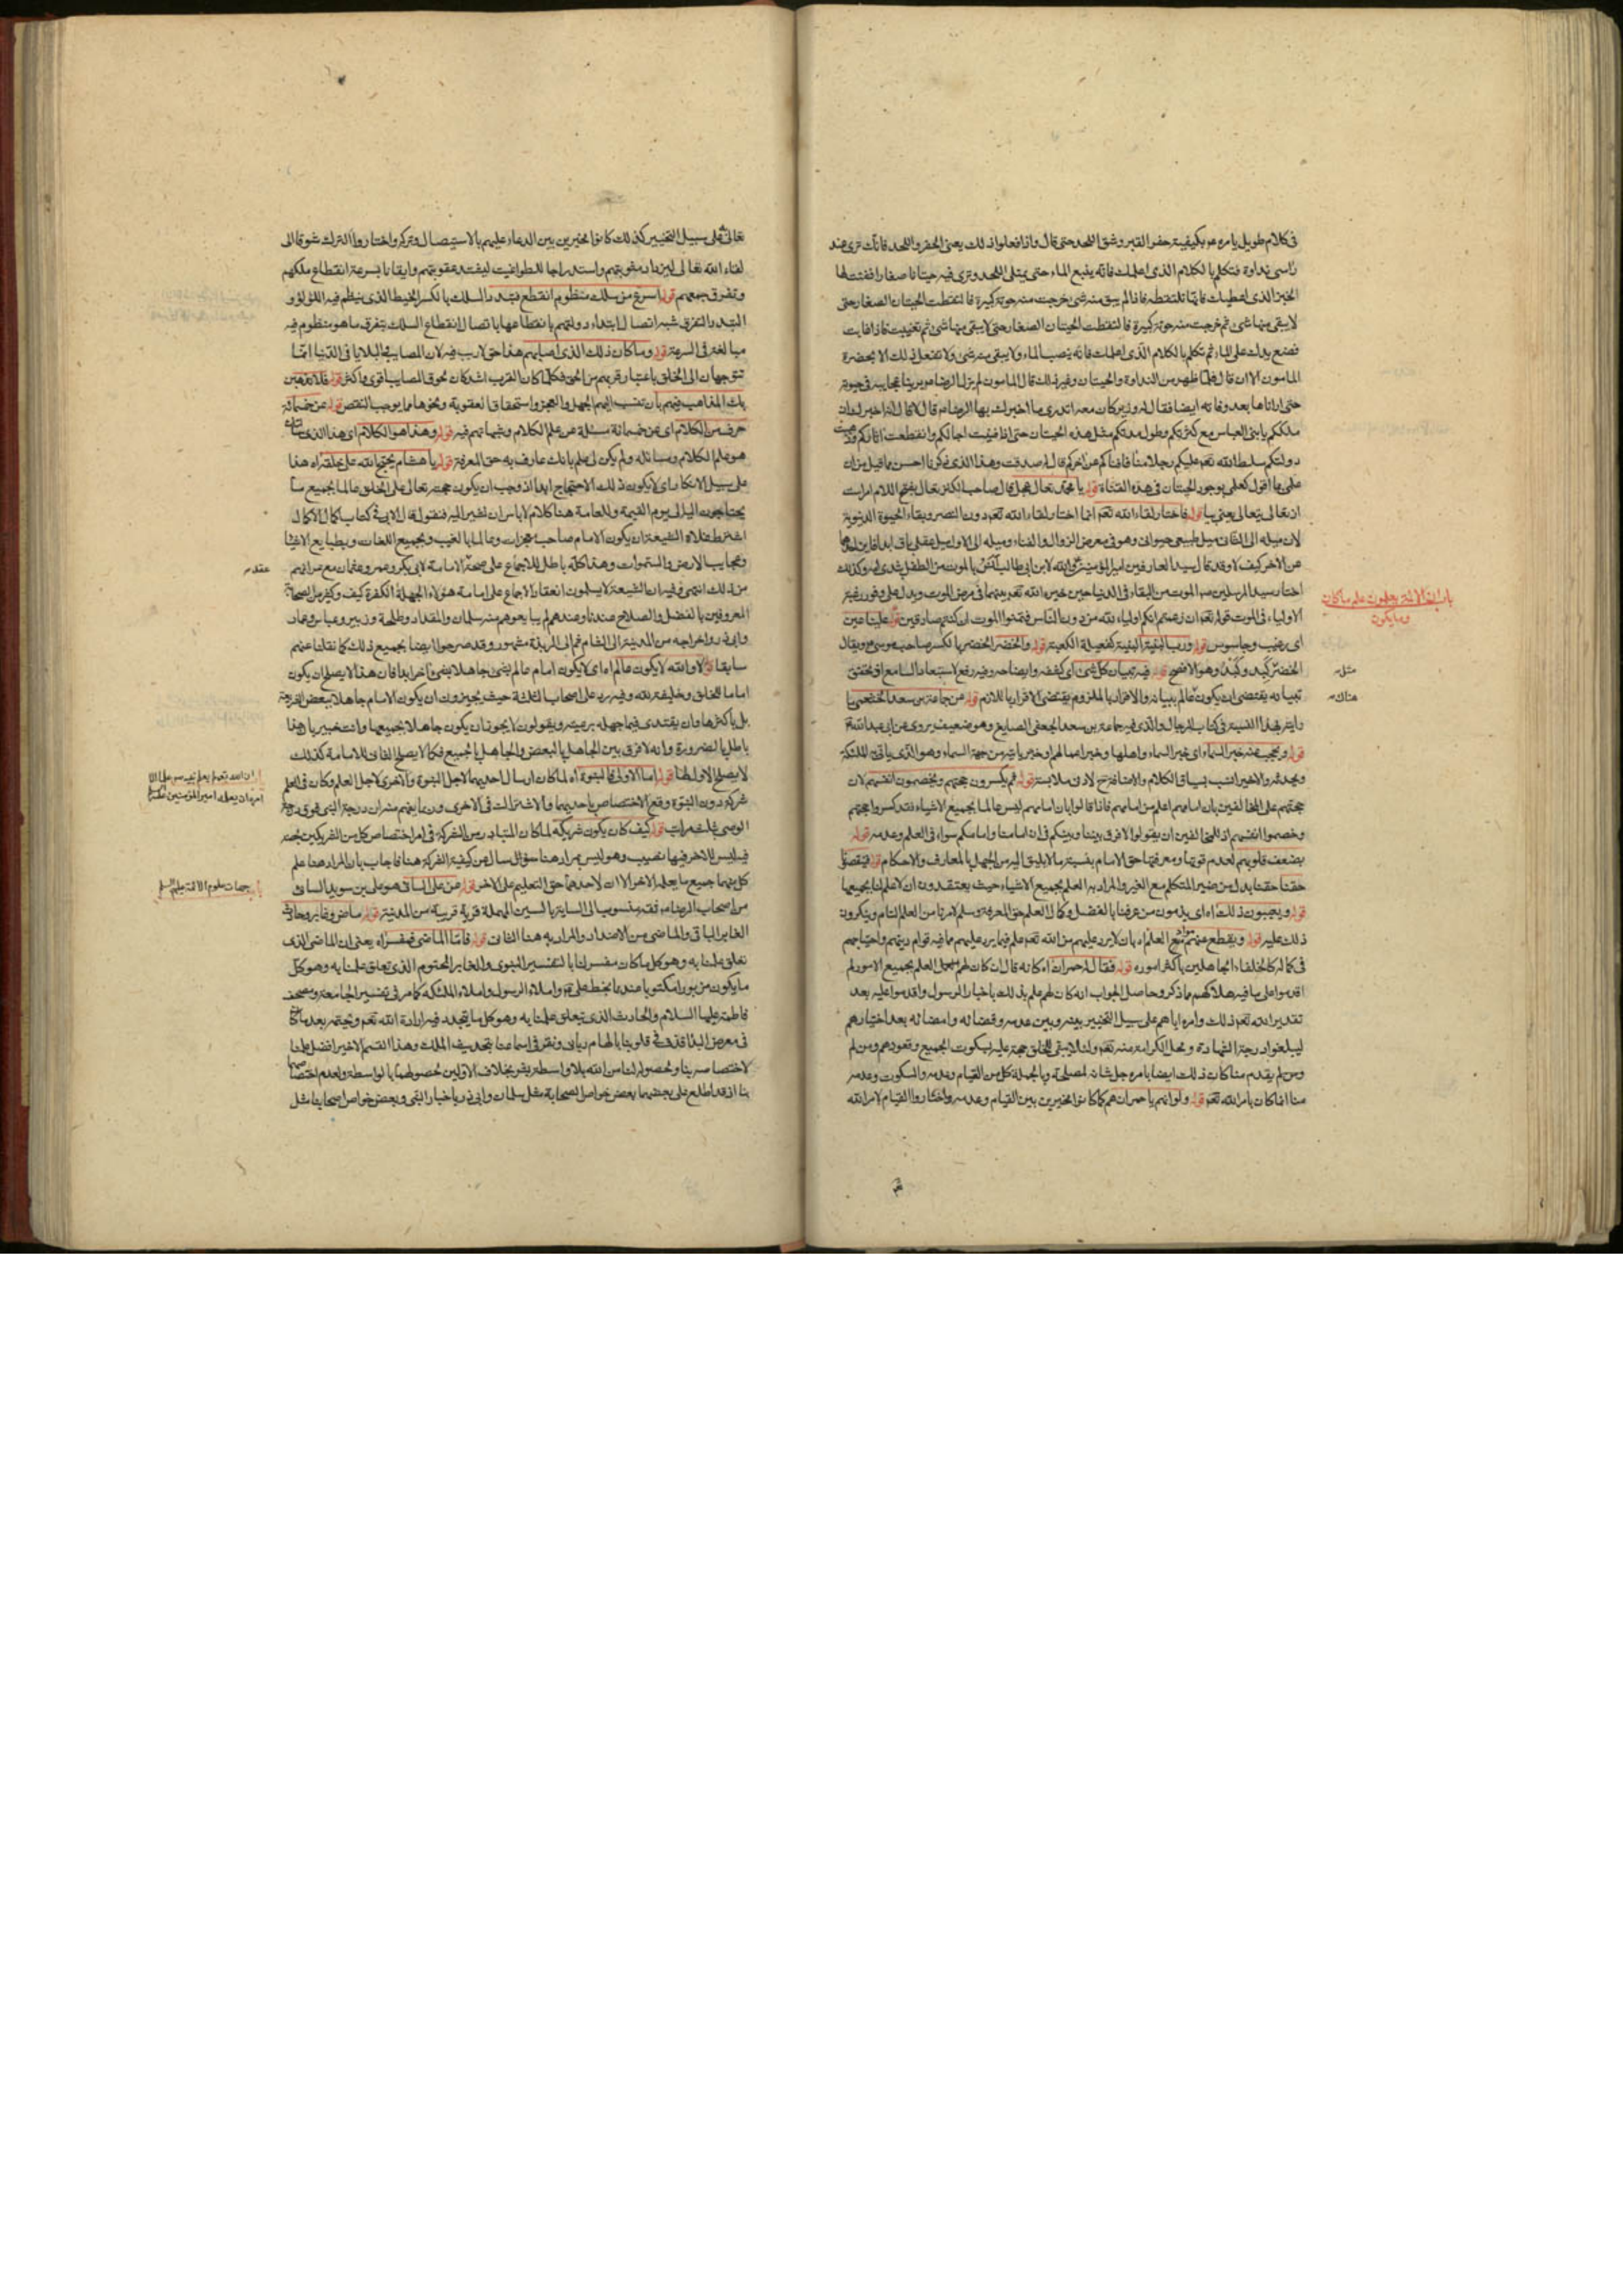 فى كلام طويل يامره عم بكيفية حفر القبر وشق اللحد حتى قال واذا فعلوا ذلك يعنى الحفر واللحد فانك ترى عند
راسى نداوة فتكلم بالكلام الذى اعلمك فانه ينبع الماء حتى يمتلى اللحد وترى فيه حيتانا صغارا ففتت لها
الخبز الذى اعطيك فانها تلتقطه فاذا لم يبق منه شئ خرجت منه حوتة كبيرة فالتقطت الحيتان الصغار حتى
لا يبقى منها شئ ثم خرجت منه حوتة كبيرة فالتقطت الحيتان الصغار حتى لا يبقى منها شئ ثم تغيب فاذا غابت
فضع يدك على الماء ثم تكلم بالكلام الذى اعلمك فانه ينضب الماء ولا يبقى منه شئ ولا تفعل ذلك الا بحضرة
المامون الا ان قال فلما ظهر من النداوة والحيتان وغير ذلك قال المامون لم يزل الرضا عم يرينا عجايبه فى حيوته
حتى اراناها بعد وفاته ايضا فقال له وزير كان معه اتدرى ما اخبرك بها الرضا عم قال لا قال انه اخبرك ان
ملككم يا بنى العباس مع كثرتكم وطول مدتكم مثل هذه الحيتان حتى اذا فنيت اجالكم وانقطعت اثاركم وذهبت
دولتكم سلط الله تعم عليكم رجلا منا فافناكم عن اخركم قال له صدقت وهذا الذى ذكرنا احسن مما قيل من ان
علمى بما اقول كعلمى بوجود الحيتان فى هذه القناة قوله
لان ميله الى اللقاء ميل طبيعى حيوانى وهو فى معرض الزوال والفناء وميله الى الاول ميل عقلى باق ابدا فاين احدهما
عن الاخر كيف لا وقد قال سيد العارفين امير المؤمنين عم والله لابن ابى طالب آنس بالموت من الطفل بثدى امه وكذلك
اختار سيد المرسلين صم الموت من البقاء فى الدنيا حين خيره الله تعم بينهما فى مرض الموت ويدل على وفور رغبة
الاولياء فى الموت قوله تعم ان زعمتم انكم اولياء لله من دون الناس فتمنوا الموت ان كنتم صادقين قوله علينا عين
اى رقيب وجاسوس قوله ورب البنية البنية كفعيلة الكعبة قوله والخضر الخضر بالكسر صاحب موسى عم ويقال
الخضر كَبِد وكِبْد وهو الافصح قوله فيه تبيان كل شئ اى كشفه وايضاحه وفيه رفع لاستبعاد السامع اذ تحقق
تبيانه يقتضى ان يكون عالم ببيانه والاقرار بالملزوم يقتضى الاقرار باللازم قوله عن جماعة بن سعد الخثعمى ما
رايته بهذا النسبة فى كتاب الرجال والذى فيه جماعة بن سعد الجعفى الصايغ وهو ضعيف يروى عن ابى عبد الله
قوله
حجتهم على المخالفين بان امامهم اعلم من امامهم فاذا قالوا بان امامهم ليس عالما بجميع الاشياء فقد كسروا حجتهم
وخصموا انفسهم اذ للمخالفين ان يقولوا لا فرق بيننا وبينكم فى ان امامنا وامامكم سواء فى العلم وعدمه قوله
بضعف قلوبهم لعدم قوتها ومعرفتها حق الامام بنسبة ما لا يليق اليه من الجهل بالمعارف والاحكام قوله فينقصونا
حقنا حقنا بدل من ضمير المتكلم مع الغير والمراد به العلم بجميع الاشياء حيث يعتقدون ان لا علم لنا بجميعها
قوله ويعيبون ذلك اه اى يلومون من عرفنا بالفضل وكمال العلم حق المعرفة وسلم لامرنا من العلم التام وينكرون
ذلك عليه قوله ويقطع عنهم مواد العلم اه بان لا يرد عليهم من الله تعم علم فيما يرد عليهم مما فيه قوام دينهم واحتياجهم
فى كماله كالخلفاء الجاهلين باكثر اموره قوله فقال له حمران اه كانه قال ان كان لهم العلم بجميع الامور لم
اقدموا على ما فيه هلاكهم مما ذكر وحاصل الجواب انه كان لهم علم بذلك باخبار الرسول واقدموا عليه بعد
تقدير الله تعم ذلك وامره اياهم على سبيل التخيير بينه وبين عدمه وقضائه وامضائه بعد اختيارهم
ليبلغوا درجة الشهادة ومحل الكرامة منه تعم ولئلا يبقى للخلق حجة عليه بسكوت الجميع وقعودهم ومن لم
ومن لم يقدم منا كان ذلك ايضا بامره جل شانه لمصلحة وبالجملة كل من القيام وعدمه والسكوت وعدمه
منا انما كان بامر الله تعم قوله ولو انهم يا حمران هم كما كانوا مخيرين بين القيام وعدمه واختاروا القيام لامر الله
باب ان الائمة يعلمون علم ما كان
وما يكون
مثل
هناك
تعالى على سبيل التخيير كذلك كانوا مخيرين بين الدعاء عليهم بالاستيصال وتركه واختاروا الترك شوقا الى
لقاء الله تعالى ليزداد عقوبتهم واستدراجا للطواغيت ليشتد عقوبتهم وايقانا بسرعة انقطاع ملكهم
وتفرق جمعهم قوله اسرع من سلك منظوم انقطع فتبدد السلك بالكسر الخيط الذى ينظم فيه اللؤلؤ و
التبدد التفرق شبه اتصال ابتداء دولتهم بانقطاعها باتصال انقطاع السلك بتفرق ما هو منظوم فيه
مبالغة فى السرعة قوله وما كان ذلك الذى اصابهم هذا حق لا ريب فيه لان المصايب والبلايا فى الدنيا انما
تتوجهان الى الخلق باعتبار قربهم من الحق فكلما كان القرب اشد كان لحوق المصايب اقوى واكثر قوله فلا تذهبن
بك المذاهب فيهم بان تنسب اليهم الجهل والعجز واستحقاق العقوبة ونحوها مما يوجب النقص قوله عن خمسمائة
حرف من الكلام اى عن خمسمائة مسئلة من علم الكلام وشبهاتهم فيه قوله وهذا هو الكلام اى هذا الذى
هو علم الكلام ومسائله ولم يكن لى علم بانك عارف به حق المعرفة قوله يا هشام يحتج الله على خلقه اه هذا
على سبيل الانكار اى لا يكون ذلك الاحتجاج ابدا اذ وجب ان يكون حجته تعالى على الخلق عالما بجميع ما
يحتاجون اليه الى يوم القيمة وللعامة هنا كلام لا باس ان نشير اليه فنقول قال الابى فى كتاب كمال الاكمال
اشترط غلاة الشيعة ان يكون الامام صاحب معجزات وعالما بالغيب وبجميع اللغات وبطبايع الاشيا
وعجايب الارض والسموات وهذا كله باطل للاجماع على صحة الامامة لابى بكر وعمر وعثمان مع عرائهم
من ذلك انتهى وفيه ان الشيعة لا يسلمون انعقاد الاجماع على امامة هؤلاء الجهلة الكفرة كيف وكثير من الصحابة
المعروفين بالفضل والصلاح عندنا وعندهم لم يبايعوهم منهم سلمان والمقداد وطلحة وزبير وعباس وعمار
وابى ذر واخراجه من المدينة الى الشام ثم الى الربذة مشهور وقد صرحوا ايضا بجميع ذلك كما نقلنا عنهم
سابقا قوله لا والله لا يكون عالم اه اى لا يكون امام عالم بشئ جاهلا بشئ اخر ابدا فان هذا لا يصلح ان يكون
اماما للخلق وخليفة لله وفيه رد على اصحاب الثلثة حيث يجيزون ان يكون الامام جاهلا ببعض الشريعة
بل باكثرها وان يقتدى فيما جهله برعيته ويقولون لا يجوز ان يكون جاهلا بجميعها وانت خبير بان هذا
باطل بالضرورة وانه لا فرق بين الجاهل بالبعض والجاهل بالجميع فكما لا يصلح الثانى للامامة كذلك
لا يصلح الاول لها قوله اما الاولى فالنبوة اه لما كان ارسال احديهما لاجل النبوة والاخرى لاجل العلم وكان فى العلم
شركة دون النبوة وقع الاختصاص باحديهما والاشتراك فى الاخرى
قوله كيف كان يكون شريكه لما كان المتبادر من الشركة فى امر اختصاص كل من الشريكين بحصة
فيه ليس للاخر فيها نصيب وهو ليس بمراد هنا سؤال سائل عن كيفية الشركة هنا فاجاب بان المراد هنا علم
كل منهما جميع ما يعلمه الاخر الا ان لاحدهما حق التعليم على الاخر قوله عن على السائى هو على بن سويد السائى
من اصحاب الرضا عم ثقة منسوب الى الساية بالسين المهملة قرية قريبة من المدينة قوله ماض وغابر وحادث
الغابر الباقى والماضى من الاضداد والمراد به هنا الثانى قوله فاما الماضى فمفسر اه يعنى ان الماضى الذى
تعلق علمنا به وهو كل ما كان مفسر لنا بالتفسير النبوى والغابر المحتوم الذى تعلق علمنا به وهو كل
ما يكون مزبورا مكتوبا عندنا بخط على عم واملاء الرسول واملاء الملئكة كما مر فى تفسير الجامعة ومصحف
فاطمة عليها السلام والحادث الذى يتعلق علمنا به وهو كل ما يتجدد فيه ارادة الله تعم وتحتمه بعد ما كان
فى معرض البدا قذف فى قلوبنا بالهام ربانى ونقر فى اسماعنا بتحديث الملك وهذا القسم الاخير افضل علمنا
لاختصاصه بنا ولحصوله لنا من الله بلا واسطة بشر بخلاف الاولين لحصولهما بالواسطة ولعدم اختصاصهما
بنا اذ قد اطلع على بعضهما بعض خواص الصحابة مثل سلمان وابى ذر باخبار النبى وبعض خواص اصحابنا مثل
ان الله تعم لم يعلم نبيه صم علما الا
امره ان يعلمه امير المؤمنين
جهات علوم الائمة عليهم السلم